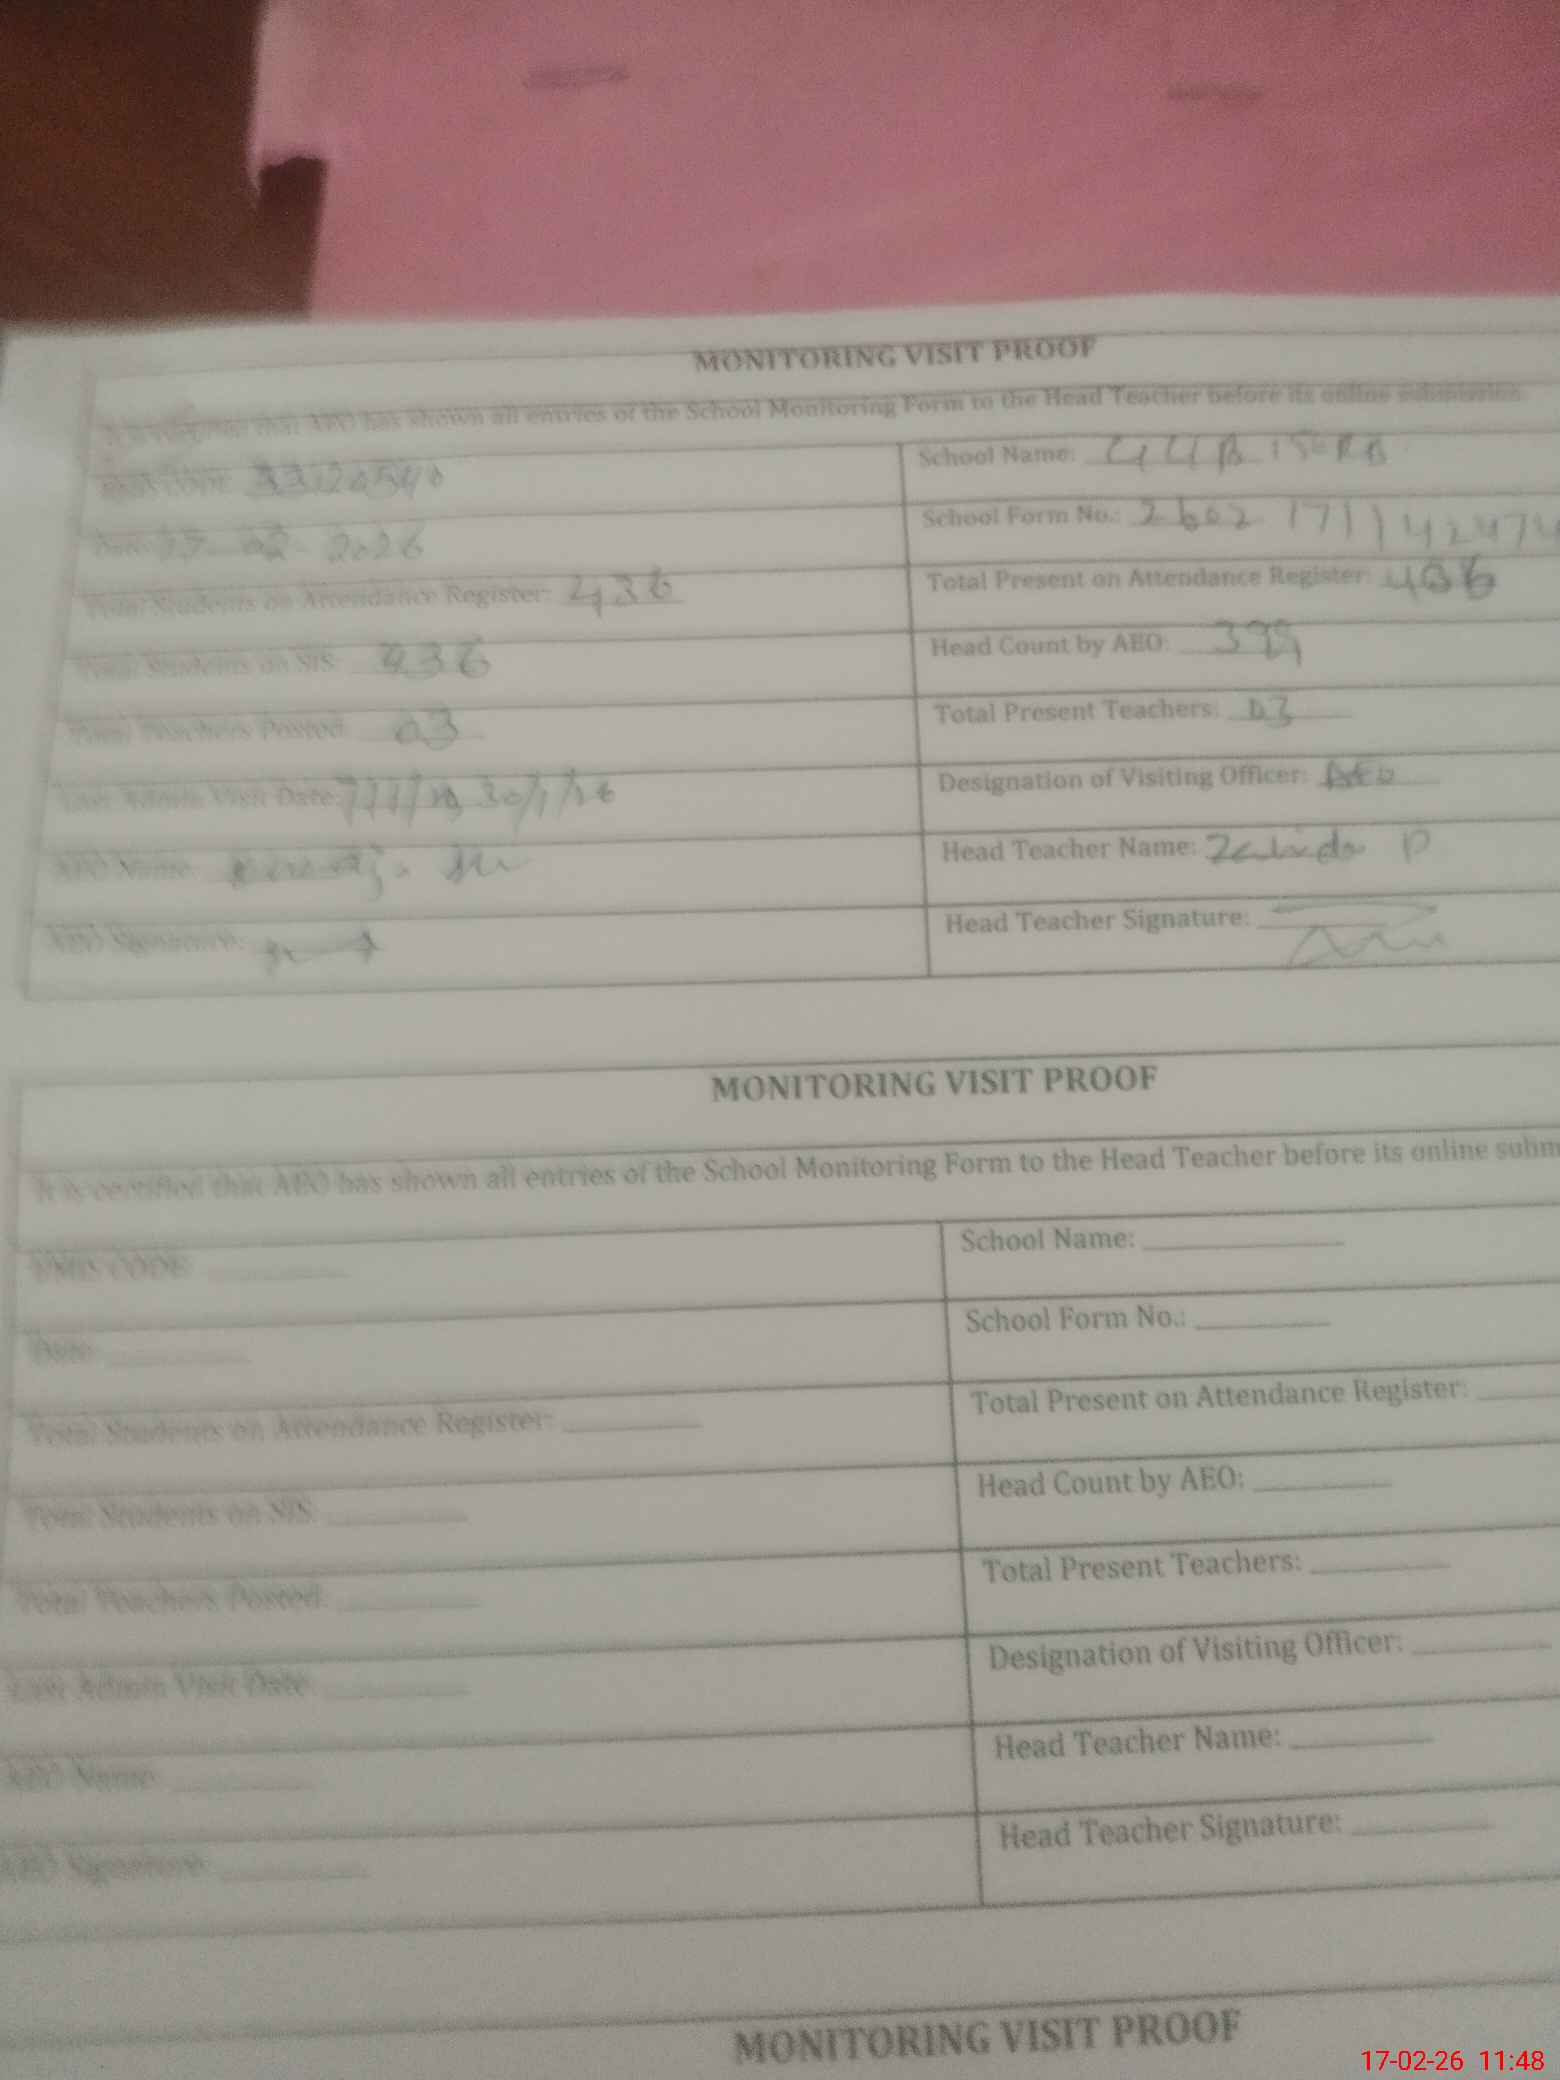 MONITORING VISIT PROOF
that AEO has shown all entries of the School Monitoring Form to the Head Teacher before its online submission.
School Name:
02-2026
School Form No.: 2602 171142474
Total Students on Attendance Register: 436
Total Present on Attendance Register: 406
Total Students on SIS: 436
Head Count by AEO: 399
Total Teachers Posted: 03
Total Present Teachers: 03
Last Admin Visit Date: 30/1/26
Designation of Visiting Officer: AEO
AEO Name:
Head Teacher Name: Zahida P
AEO Signature:
Head Teacher Signature:
MONITORING VISIT PROOF
It is certified that AEO has shown all entries of the School Monitoring Form to the Head Teacher before its online subm
EMIS CODE:
School Name:
Date:
School Form No.:
Total Students on Attendance Register:
Total Present on Attendance Register:
Total Students on SIS:
Head Count by AEO:
Total Teachers Posted:
Total Present Teachers:
Last Admin Visit Date:
Designation of Visiting Officer:
AEO Name:
Head Teacher Name:
AEO Signature:
Head Teacher Signature:
MONITORING VISIT PROOF
17-02-26 11:48